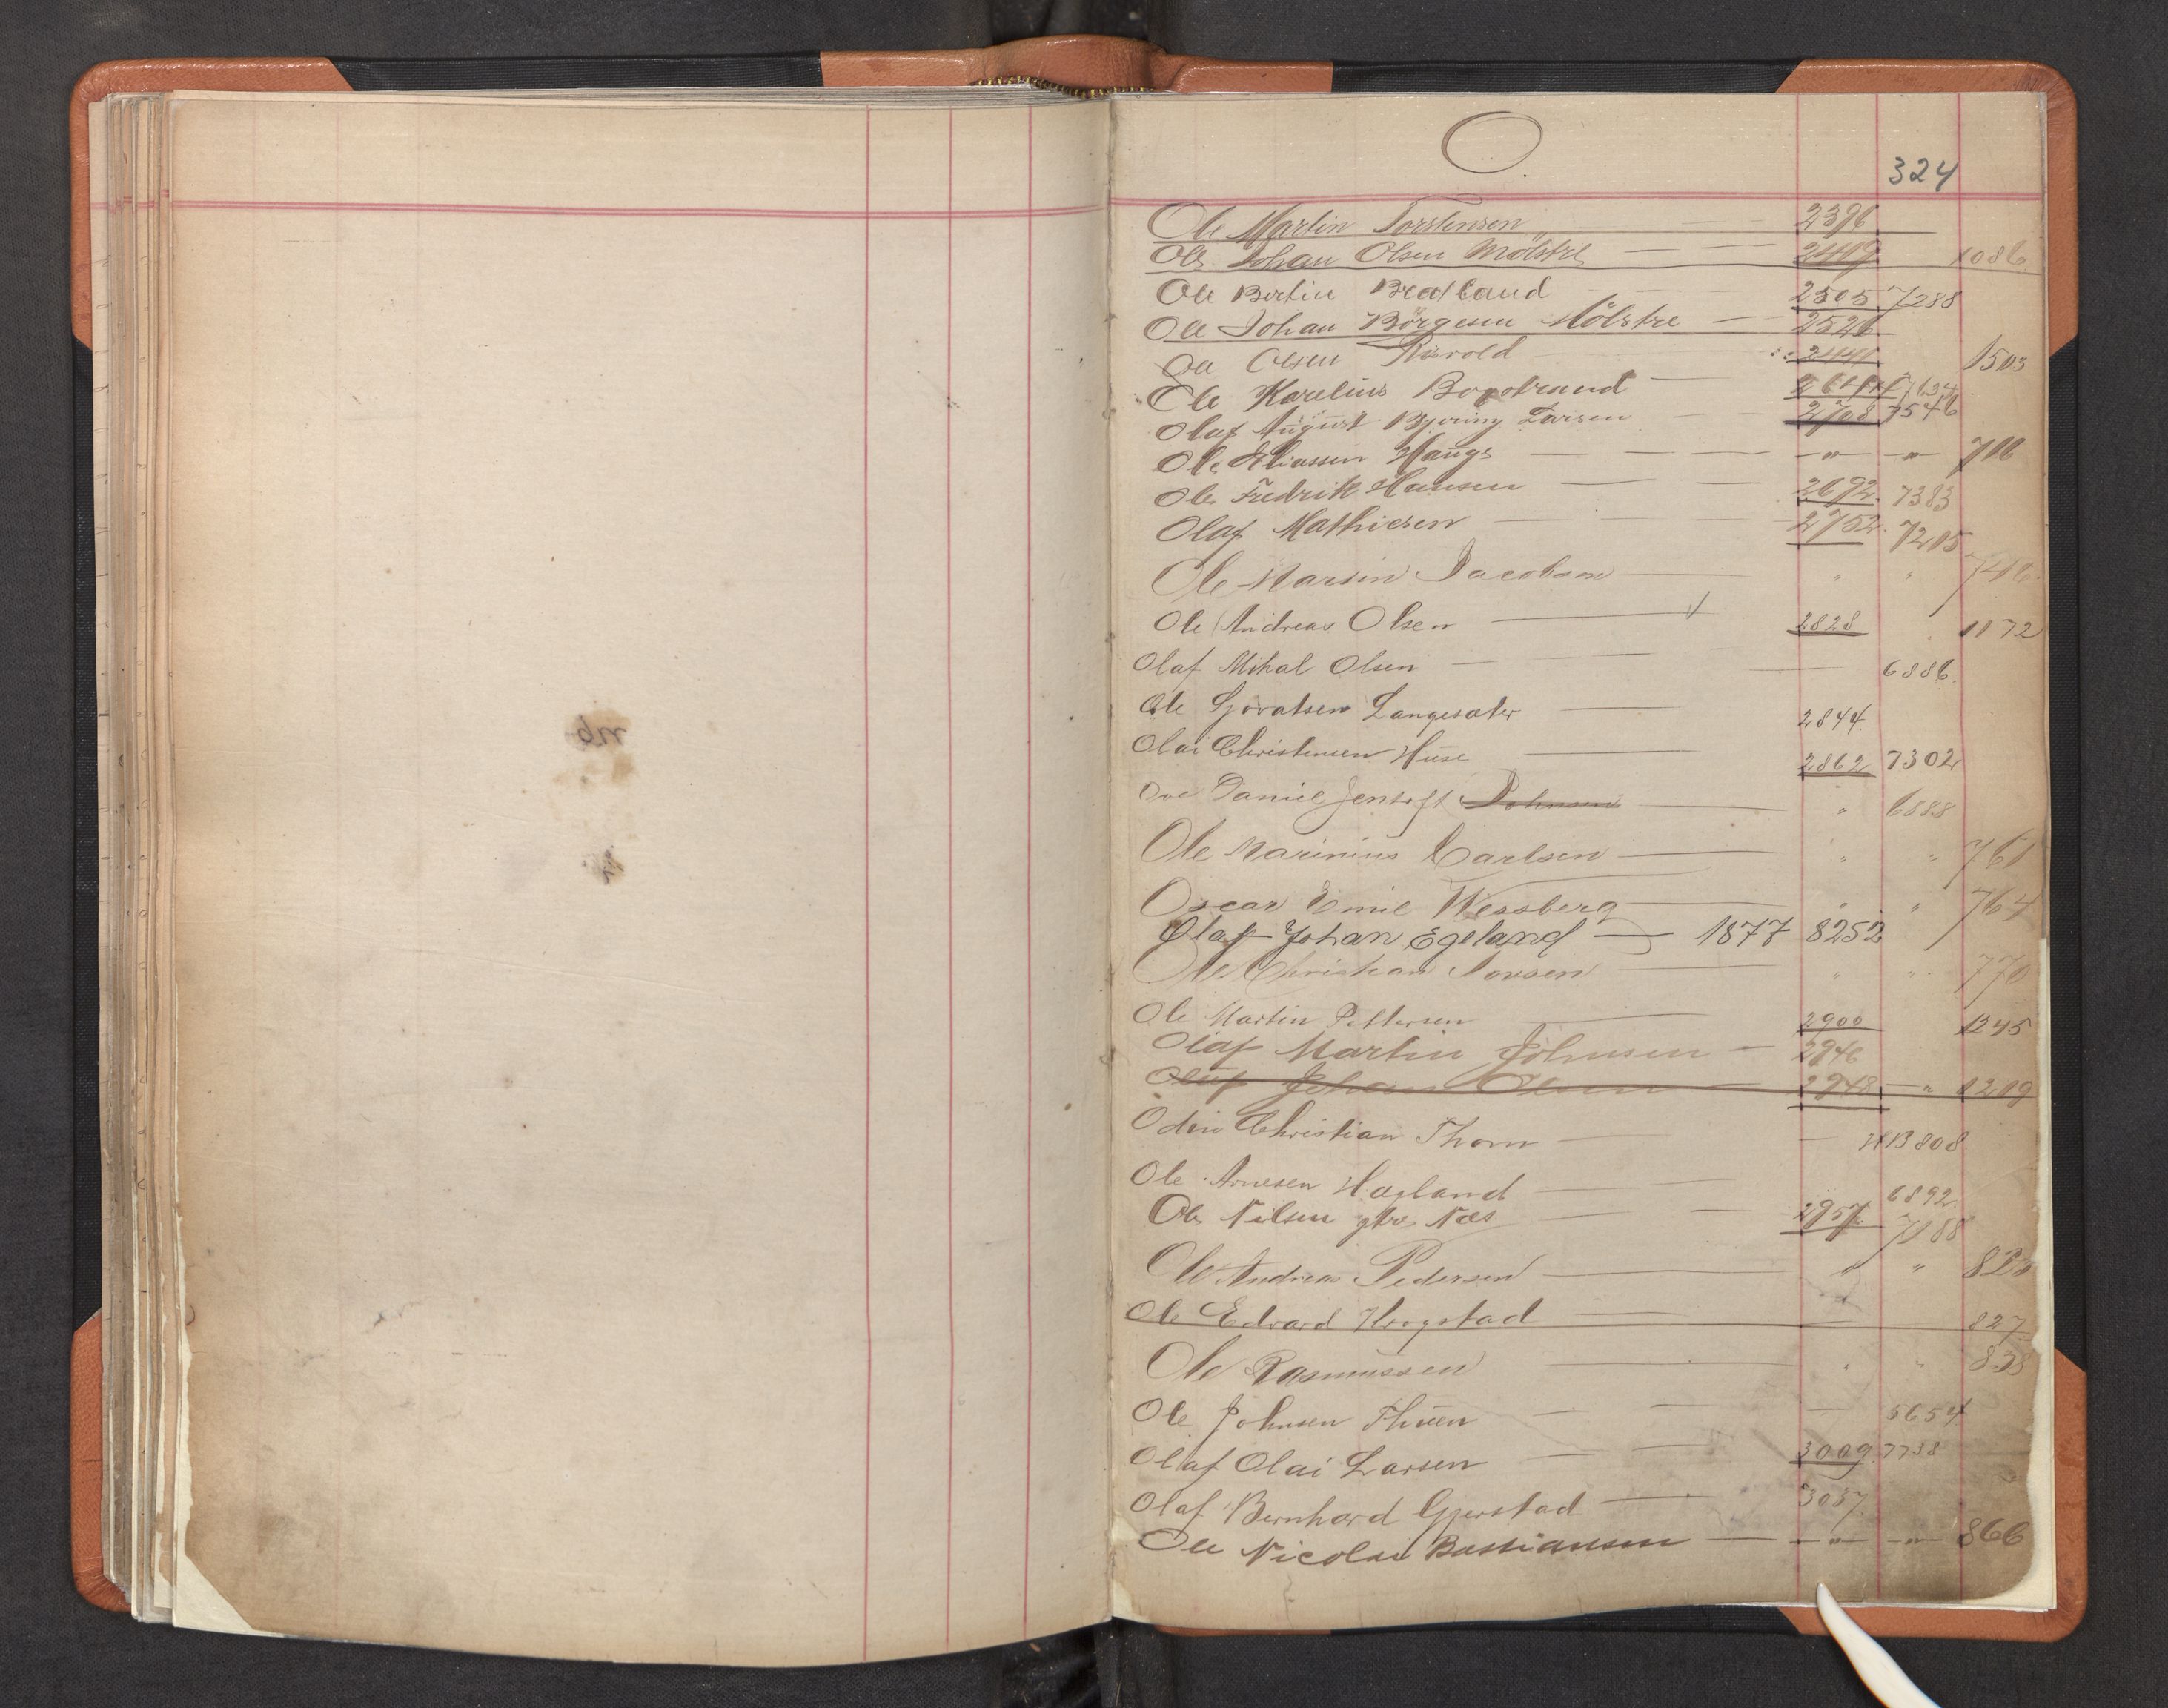 O.
324
Ole Martin Torstensen 2396
Ole Johan Olsen Mölstre 2409 1086
Ole Bertin Bratland 2505 7288
Ole Johan Börgesen Mölstre 2526
Ole Olsen 1503
Ole Karelius
Olaf August Bjering Larsen 2708 7546
Ole Eliassen Haugs — " — — " —
Ole Fredrik Hansen 2692 7383
Olaf Mathiesen 2752
Ole Martin Jacobsen " "
Ole Andreas Olsen 2828 1172
Olaf Mikal Olsen 6886
Ole Sjovatsen Langesæter 2844
Olai Christensen Huse 2862 7302
Ove Daniel Jentoft Johnsen " 6888
Ole Marinius Carlsen " " 761
Oscar Emil Wessberg " " 764
Olaf Johan Egeland — 1877 8252
Ole Christian " " 770
Ole Martin Pettersen 2900 1245
Olaf Martin Johnsen 2946
Johan Olsen 2948 — " 1219
Odin Christian Thorn 13808
Ole Arnesen Hagland 6892
Ole Nilsen Næs 2957 7188
Ole Andreas Pedersen " "
Ole Edvard Krogstad 827
Ole Rasmussen " " 838
Ole Johnsen Thuen
Olaf Olai Larsen 3009 7738
Olaf Bernhard Gjerstad 3037
Ole Nicolai Bastiansen — " — — " — 866